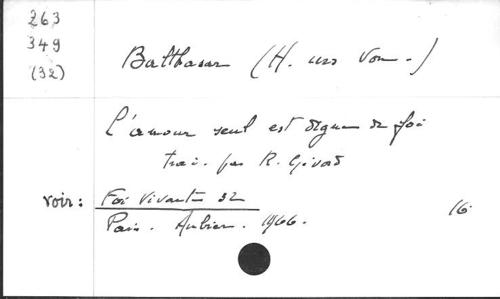 263
349
(32)
Balthasar (H. urs von.)
L'amour seul est digne de foi
trad. par R. Givord
voir : Foi Vivante 32
Paris. Aubier. 1966.
16.